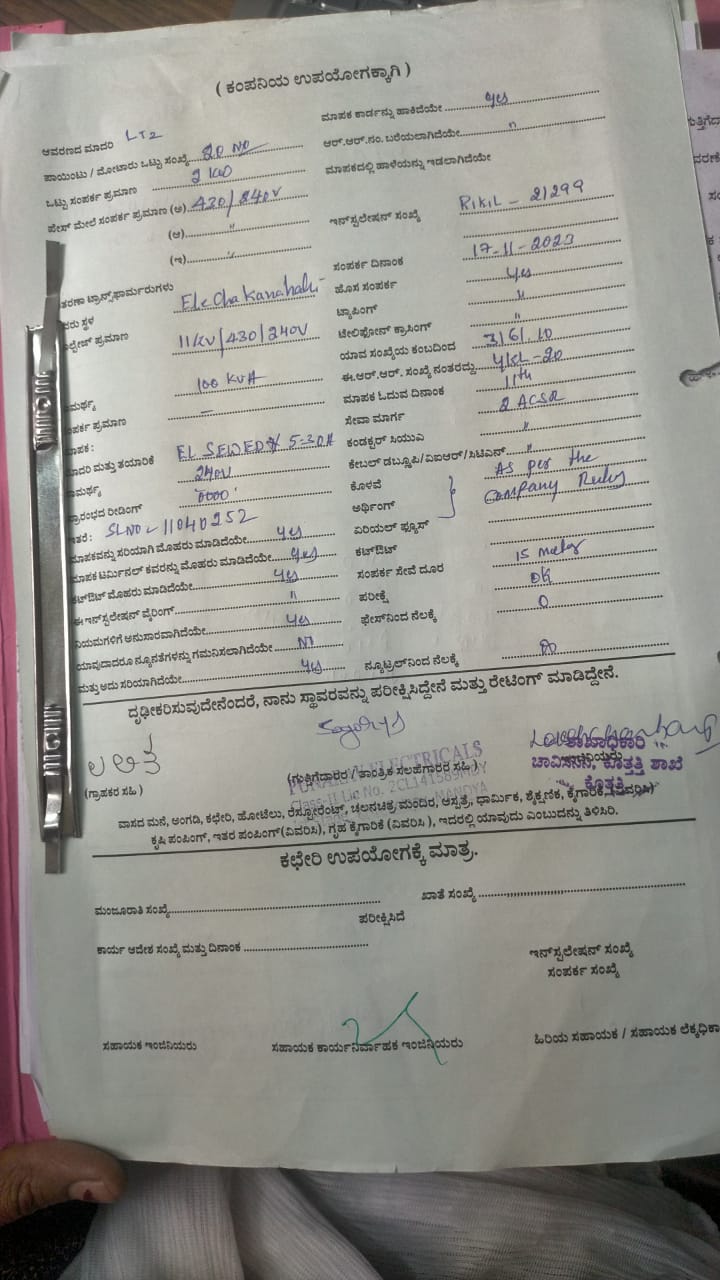 ( ಕಂಪನಿಯ ಉಪಯೋಗಕ್ಕಾಗಿ )
ಆವರಣದ ಮಾದರಿ LT2
ಪಾಯಿಂಟು / ಮೋಟಾರು ಒಟ್ಟು ಸಂಖ್ಯೆ 20 NO
ಒಟ್ಟು ಸಂಪರ್ಕ ಪ್ರಮಾಣ 2 KW
ಫೇಸ್ ಮೇಲೆ ಸಂಪರ್ಕ ಪ್ರಮಾಣ (ಅ) 430/240V
(ಆ) "
(ಇ) "
ತರಣಾ ಟ್ರಾನ್ಸ್‌ಫಾರ್ಮರುಗಳು
ವರು ಸ್ಥಳ Elechakanahalli
ಲ್ಟೇಜ್ ಪ್ರಮಾಣ 11KV/430/240V
ಮರ್ಥ್ಯ 100 KVA
ಪರ್ಕ ಪ್ರಮಾಣ –
ಮಾಪಕ:
ಮಾದರಿ ಮತ್ತು ತಯಾರಿಕೆ 5-30A
ಮರ್ಥ್ಯ 240V
ಪ್ರಾರಂಭದ ರೀಡಿಂಗ್ '0000'
ಇತರೆ: SLNO - 11040252
ಮಾಪಕವನ್ನು ಸರಿಯಾಗಿ ಮೊಹರು ಮಾಡಿದೆಯೇ yes
ಮಾಪಕ ಟರ್ಮಿನಲ್ ಕವರನ್ನು ಮೊಹರು ಮಾಡಿದೆಯೇ yes
ಕಟ್‌ಔಟ್ ಮೊಹರು ಮಾಡಿದೆಯೇ yes
ಈ ಇನ್‌ಸ್ಟಲೇಷನ್ ವೈರಿಂಗ್ "
ನಿಯಮಗಳಿಗೆ ಅನುಸಾರವಾಗಿದೆಯೇ yes
ಯಾವುದಾದರೂ ನ್ಯೂನತೆಗಳನ್ನು ಗಮನಿಸಲಾಗಿದೆಯೇ
ಮತ್ತು ಅದು ಸರಿಯಾಗಿದೆಯೇ yes
ಮಾಪಕ ಕಾರ್ಡನ್ನು ಹಾಕಿದೆಯೇ yes
ಆರ್.ಆರ್.ನಂ. ಬರೆಯಲಾಗಿದೆಯೇ "
ಮಾಪಕದಲ್ಲಿ ಹಾಳೆಯನ್ನು ಇಡಲಾಗಿದೆಯೇ
ಇನ್‌ಸ್ಟಲೇಷನ್ ಸಂಖ್ಯೆ - 21299
ಸಂಪರ್ಕ ದಿನಾಂಕ 17-11-2023
ಹೊಸ ಸಂಪರ್ಕ yes
ಟ್ಯಾಪಿಂಗ್ "
ಟೆಲಿಫೋನ್ ಕ್ರಾಸಿಂಗ್ "
ಯಾವ ಸಂಖ್ಯೆಯ ಕಂಬದಿಂದ 3/6/10
ಈ.ಆರ್.ಆರ್. ಸಂಖ್ಯೆ ನಂತರದ್ದು
ಮಾಪಕ ಓದುವ ದಿನಾಂಕ 11th
ಸೇವಾ ಮಾರ್ಗ 2 ACSR
ಕಂಡಕ್ಟರ್ ಸಿಯುಎ "
ಕೇಬಲ್ ಡಬ್ಲ್ಯೂಪಿ/ಐಐಆರ್/ಸಿಟಿಎಸ್ "
ಕೊಳವೆ As per the
ಅರ್ಥಿಂಗ್ Company Rules
ಏರಿಯಲ್ ಫ್ಯೂಸ್
ಕಟ್‌ಔಟ್
ಸಂಪರ್ಕ ಸೇವೆ ದೂರ 15 meter
ಪರೀಕ್ಷೆ OK
ಫೇಸ್‌ನಿಂದ ನೆಲಕ್ಕೆ 0
ನ್ಯೂಟ್ರಲ್‌ನಿಂದ ನೆಲಕ್ಕೆ
ದೃಢೀಕರಿಸುವುದೇನೆಂದರೆ, ನಾನು ಸ್ಥಾವರವನ್ನು ಪರೀಕ್ಷಿಸಿದ್ದೇನೆ ಮತ್ತು ರೇಟಿಂಗ್ ಮಾಡಿದ್ದೇನೆ.
ಲಲಿತ
(ಗ್ರಾಹಕರ ಸಹಿ)
ELECTRICALS
(ಗುತ್ತಿಗೆದಾರರ / ತಾಂತ್ರಿಕ ಸಲಹೆಗಾರರ ಸಹಿ)
MANDYA
ಶಾಖಾಧಿಕಾರಿ
ಚಾವಿಸನಿನಿ, ಕೊತ್ತತ್ತಿ ಶಾಖೆ
ಕೊತ್ತತ್ತಿ
ವಾಸದ ಮನೆ, ಅಂಗಡಿ, ಕಛೇರಿ, ಹೋಟೆಲು, ರೆಸ್ಟೋರೆಂಟ್, ಚಲನಚಿತ್ರ ಮಂದಿರ, ಆಸ್ಪತ್ರೆ, ಧಾರ್ಮಿಕ, ಶೈಕ್ಷಣಿಕ, ಕೈಗಾರಿಕೆ, (ವಿವರಿಸಿ)
ಕೃಷಿ ಪಂಪಿಂಗ್, ಇತರ ಪಂಪಿಂಗ್(ವಿವರಿಸಿ), ಗೃಹ ಕೈಗಾರಿಕೆ (ವಿವರಿಸಿ), ಇದರಲ್ಲಿ ಯಾವುದು ಎಂಬುದನ್ನು ತಿಳಿಸಿರಿ.
ಕಛೇರಿ ಉಪಯೋಗಕ್ಕೆ ಮಾತ್ರ.
ಮಂಜೂರಾತಿ ಸಂಖ್ಯೆ
ಖಾತೆ ಸಂಖ್ಯೆ
ಪರೀಕ್ಷಿಸಿದೆ
ಕಾರ್ಯ ಆದೇಶ ಸಂಖ್ಯೆ ಮತ್ತು ದಿನಾಂಕ
ಇನ್‌ಸ್ಟಲೇಷನ್ ಸಂಖ್ಯೆ
ಸಂಪರ್ಕ ಸಂಖ್ಯೆ
ಸಹಾಯಕ ಇಂಜಿನಿಯರು
ಸಹಾಯಕ ಕಾರ್ಯನಿರ್ವಾಹಕ ಇಂಜಿನಿಯರು
ಹಿರಿಯ ಸಹಾಯಕ / ಸಹಾಯಕ ಲೆಕ್ಕಧಿಕಾ